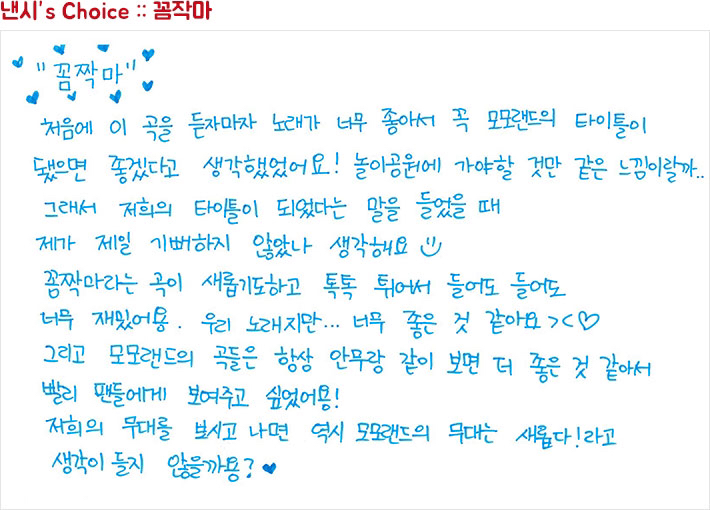 낸시's Choice :: 꼼작마
"꼼짝마"
처음에 이 곡을 듣자마자 노래가 너무 좋아서 꼭 모모랜드의 타이틀이
됐으면 좋겠다고 생각했었어요! 놀이공원에 가야할 것만 같은 느낌이랄까..
그래서 저희의 타이틀이 되었다는 말을 들었을 때
제가 제일 기뻐하지 않았나 생각해요
꼼짝마라는 곡이 새롭기도하고 톡톡 튀어서 들어도 들어도
너무 재밌어용. 우리 노래지만... 너무 좋은 것 같아요 >< ♡
그리고 모모랜드의 곡들은 항상 안무랑 같이 보면 더 좋은 것 같아서
빨리 팬들에게 보여주고 싶었어용!
저희의 무대를 보시고 나면 역시 모모랜드의 무대는 새롭다!라고
생각이 들지 않을까용? ♥